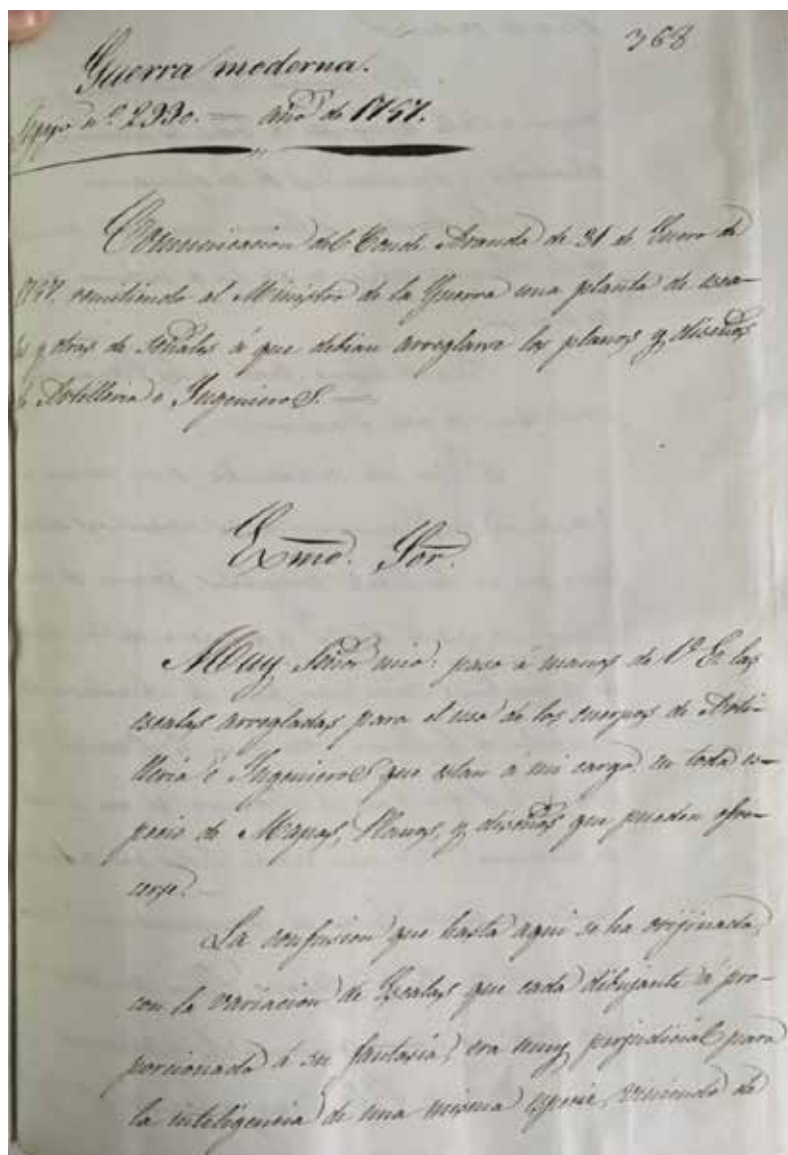 368
Guerra moderna.
Legajo nº. 2990. — año de 1757.
Comunicacion del Conde Aranda de 31 de Enero de
1757. remitiendo al Ministro de la Guerra una planta de esca-
las y otras de señales á que debian arreglarse los planos y diseños
de Artilleria e Ingenieros. —
Exmo. Sor.
Muy Señor mio: paso á manos de Vª Exª las
escalas arregladas para el uso de los cuerpos de Arti-
lleria é Ingenieros que estan á mi cargo en toda es-
pecie de Mapas, Planos, y diseños que pueden ofre-
cerse.
La confusion que hasta aqui se ha orijinado,
con la variacion de Escalas que cada dibujante á pro-
porcionado á su fantasia, era muy perjudicial para
la inteligencia de una misma especie, viniendo de